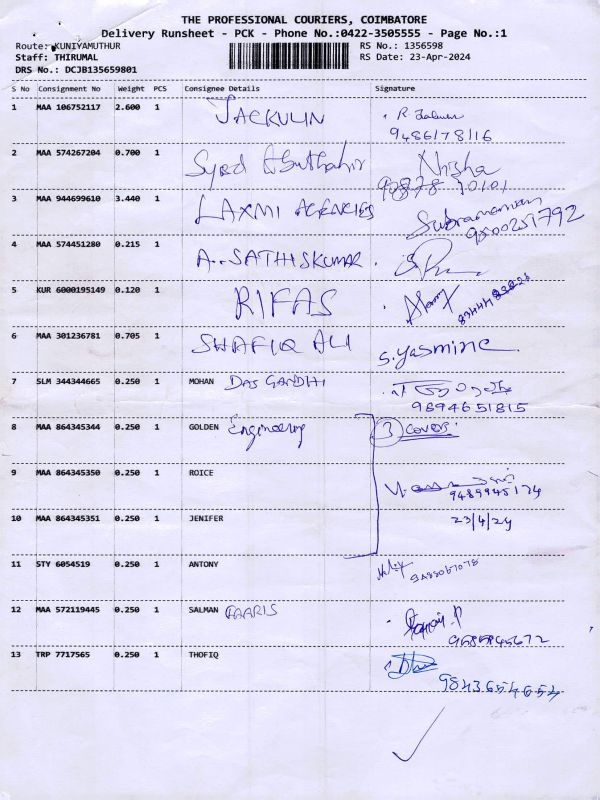 THE PROFESSIONAL COURIERS, COIMBATORE
Delivery Runsheet - PCK - Phone No.:0422-3505555 - Page No.:1
Route: KUNIYAMUTHUR
RS No.: 1356598
Staff: THIRUMAL
RS Date: 23-Apr-2024
DRS No.: DCJB135659801
S No Consignment No Weight PCS Consignee Details Signature
1 MAA 106752117 2.600 1 JACKULIN
9486178116
2 MAA 574267204 0.700 1 Syed Abuthahir Nisha
3 MAA 944699610 3.440 1 LAXMI AGENCIES Subramaniam
9500251792
4 MAA 574451280 0.215 1 A. SATHISKUMAR
5 KUR 6000195149 0.120 1 RIFAS
6 MAA 301236781 0.705 1 SHAFIQ ALI S. Yasmine
7 SLM 344344665 0.250 1 MOHAN DAS GANDHI
9894651815
8 MAA 864345344 0.250 1 GOLDEN Engineering 3 covers
9 MAA 864345350 0.250 1 ROICE
9489945174
10 MAA 864345351 0.250 1 JENIFER 23/4/24
11 STY 6054519 0.250 1 ANTONY
12 MAA 572119445 0.250 1 SALMAN FAARIS
13 TRP 7717565 0.250 1 THOFIQ
9843654654